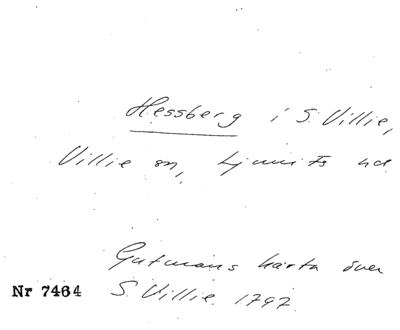 Hessberg i S. Villie,
Villie sn, Ljunits hd.
Gutmans karta över
Nr 7464 S. Villie. 1797.